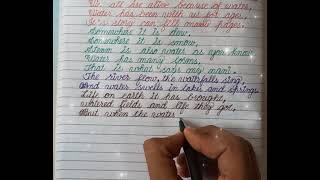 We all are alive because of water,
Water has been with us for ages.
It's story can fill many pages.
Somewhere it is dew,
Somewhere it is snow,
Steam is also water as you know
Water has many forms,
That is what says my mam.
The rivers flow, the waterfalls sing,
And water swells in lakes and springs
Life on earth it has brought,
watered fields and life they got,
But when the water